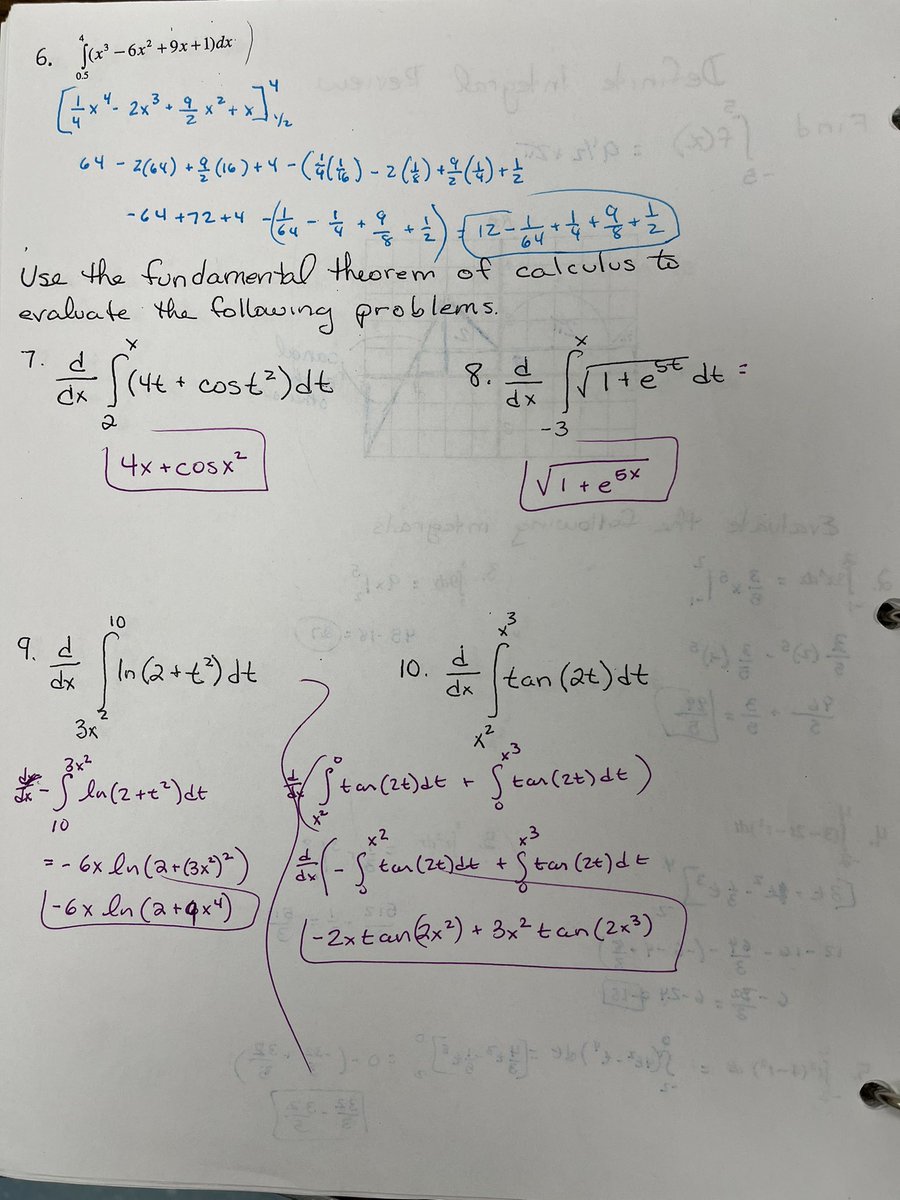 6. ∫_{0.5}^{4} (x³ – 6x² + 9x + 1)dx )
[¼x⁴ - 2x³ + 9/2 x² + x]^{4}_{1/2}
64 - 2(64) + 9/2(16) + 4 - (¼(1/16) - 2(1/8) + 9/2(¼) + ½
-64 + 72 + 4 - (1/64 - ¼ + 9/8 + ½) = 12 - 1/64 + ¼ + 9/8 + ½
Use the fundamental theorem of calculus to
evaluate the following problems.
7. d/dx ∫_{2}^{x} (4t + cos t²)dt
8. d/dx ∫_{-3}^{x} √(1+e^{5t}) dt =
4x + cosx²
√(1 + e^{5x})
9. d/dx ∫_{3x²}^{10} ln(2+t²)dt
10. d/dx ∫_{x²}^{x³} tan(2t)dt
d/dx - ∫_{10}^{3x²} ln(2+t²)dt
= -6x ln(2+(3x²)²)
-6x ln(2+9x⁴)
d/dx (∫_{x²}^{0} tan(2t)dt + ∫_{0}^{x³} tan(2t)dt)
d/dx (- ∫_{0}^{x²} tan(2t)dt + ∫_{0}^{x³} tan(2t)dt
-2x tan(2x²) + 3x² tan(2x³)